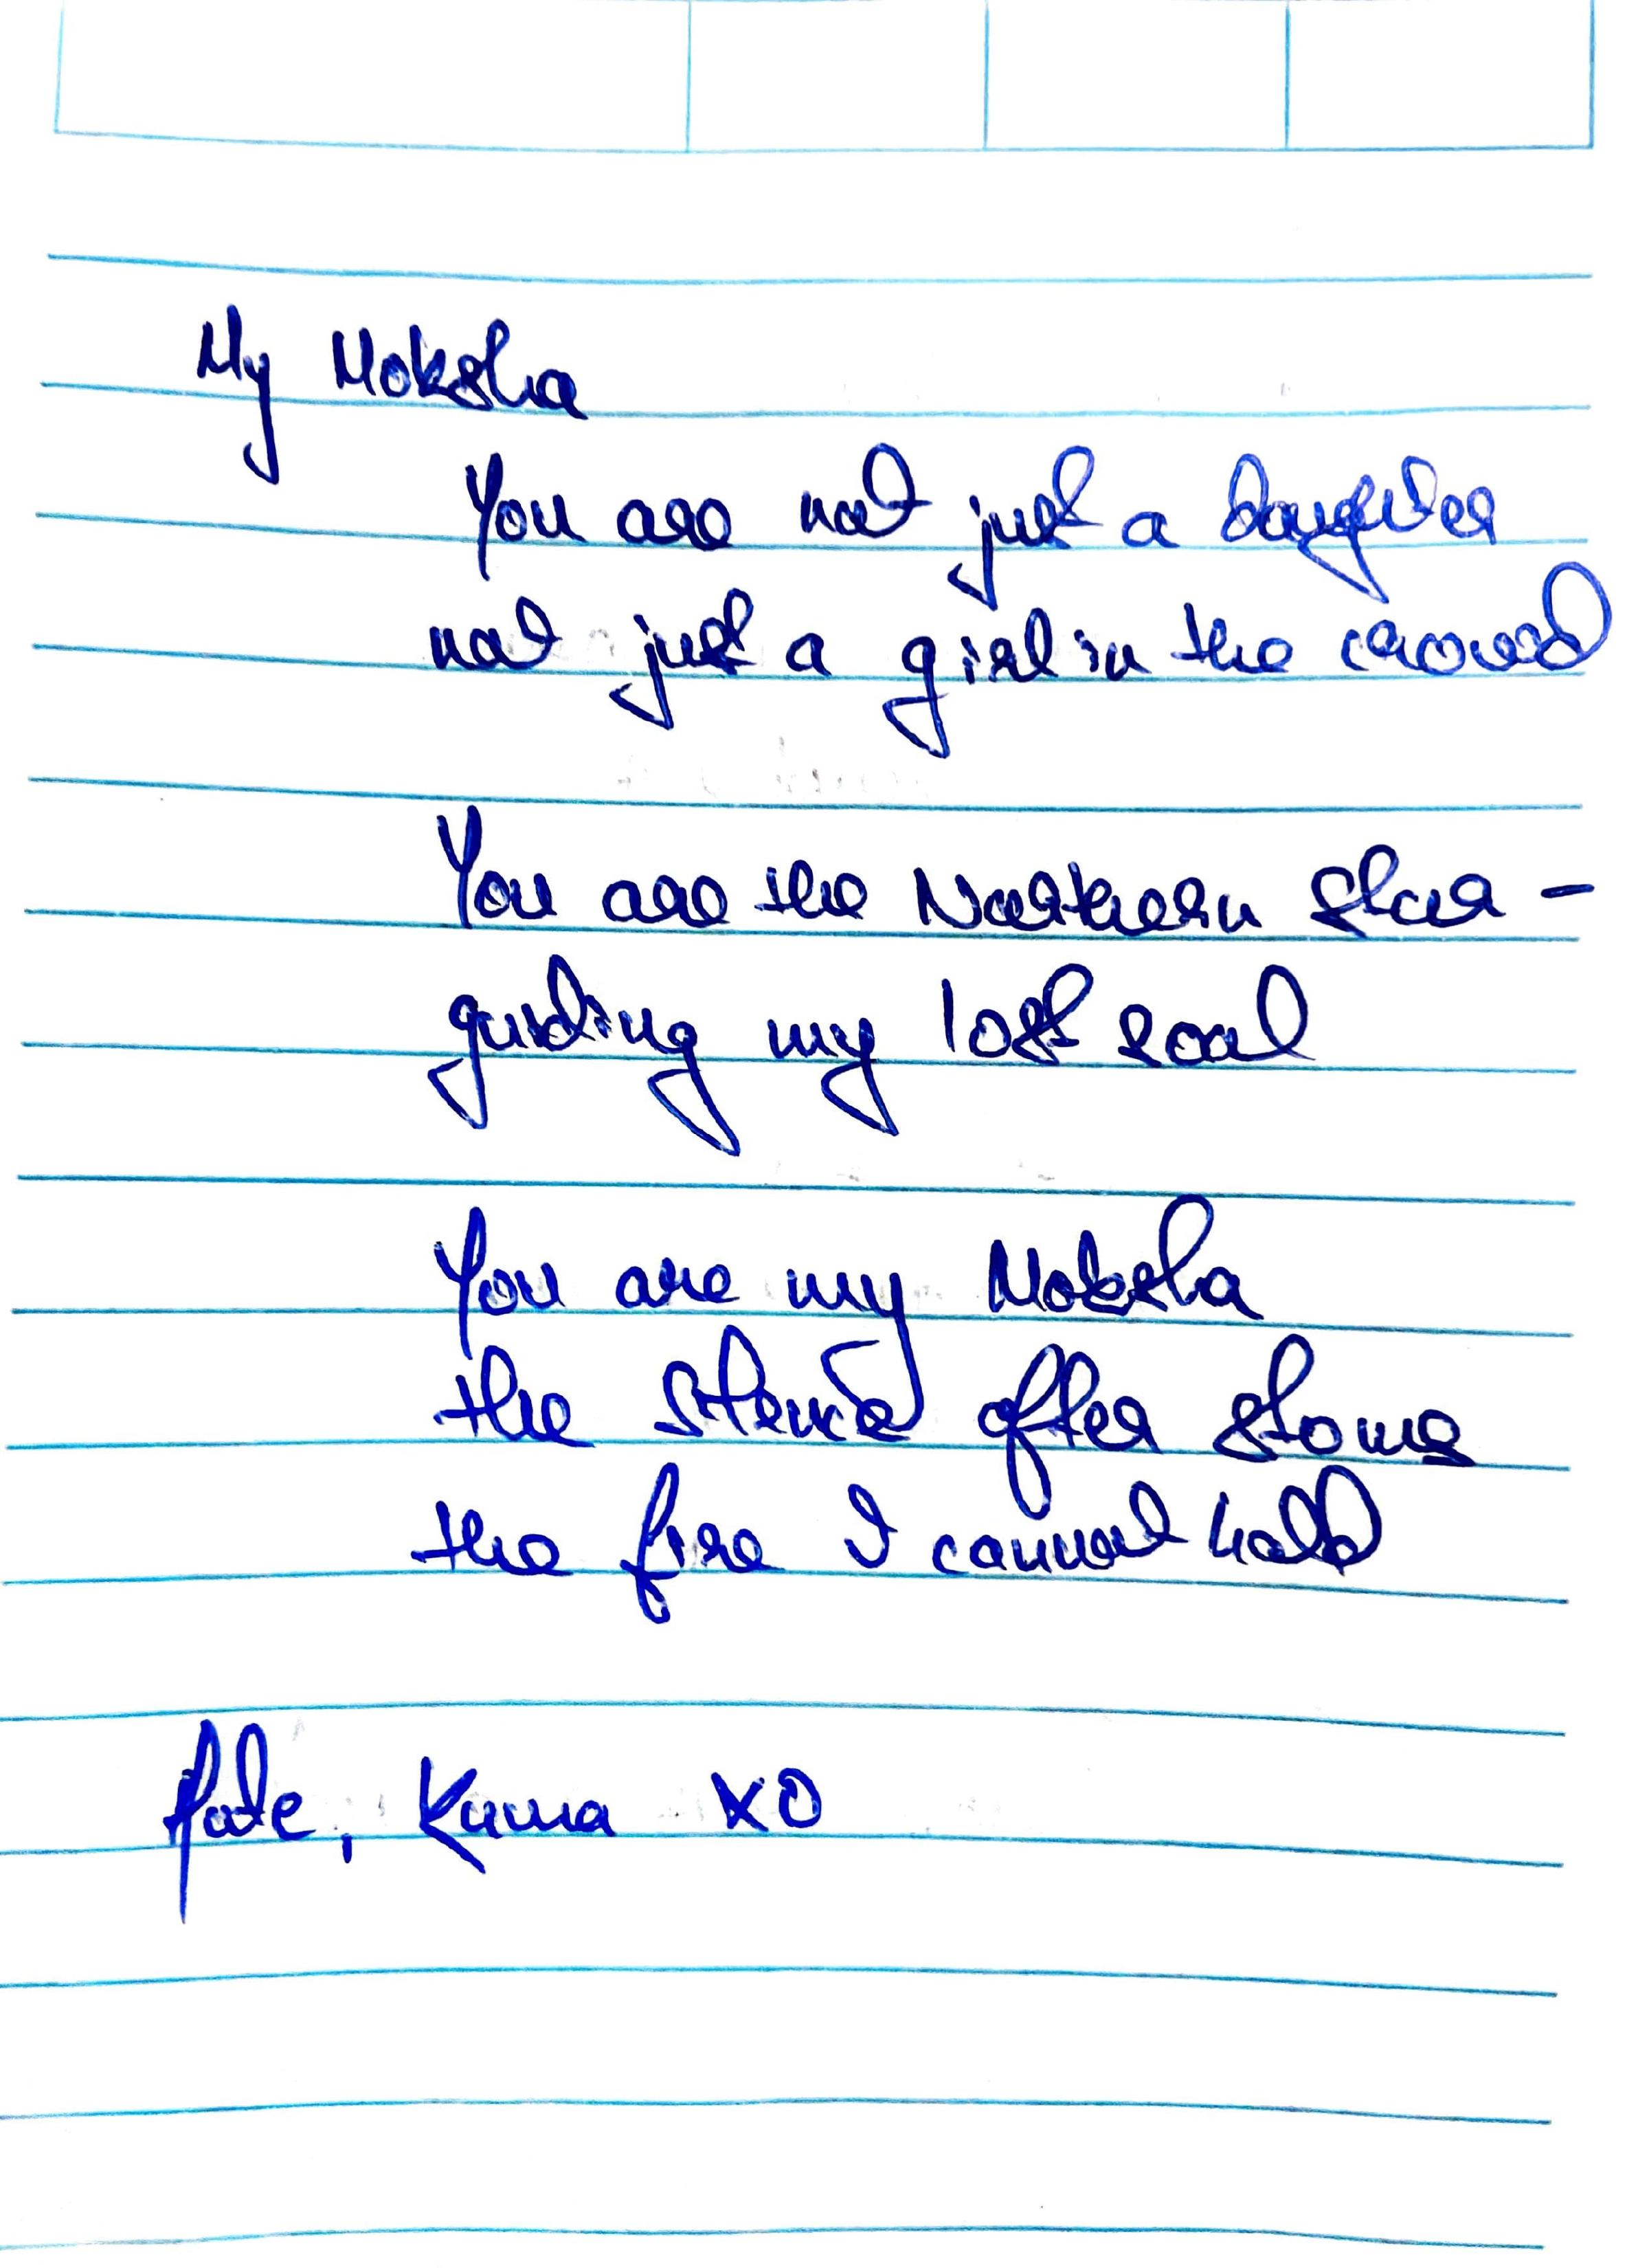 My Moksha
You are not just a daughter
not just a girl in the crowd
You are the Northern star -
guiding my lost soul
You are my Moksha
the silence after storms
the fire I cannot hold
Fate, Kama XO